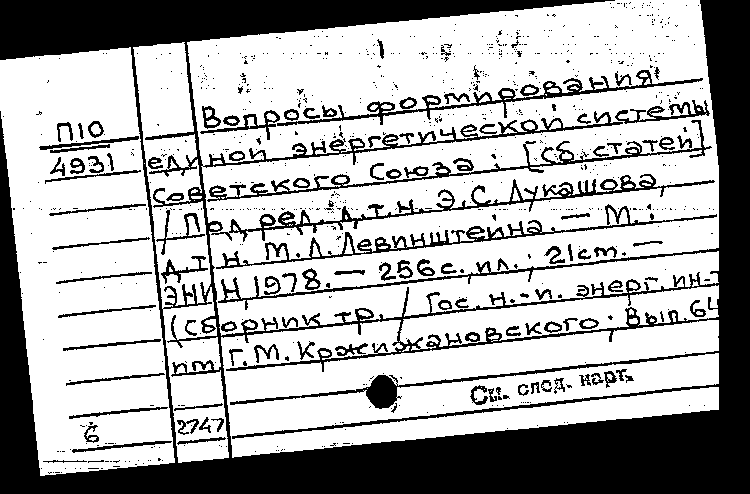 Вопросы формирования
П10
4931 единой энергетической системы
Советского Союза : [Сб. статей]
/ Под ред. д.т.н. Э.С. Лукашова,
д.т.н. М.Л. Левинштейна. — М. :
ЭНИН, 1978. — 256 с., ил. ; 21 см. —
(Сборник тр. / Гос. н.-и. энерг. ин-т
им. Г.М. Кржижановского ; Вып. 64
См. след. карт.
6 2747